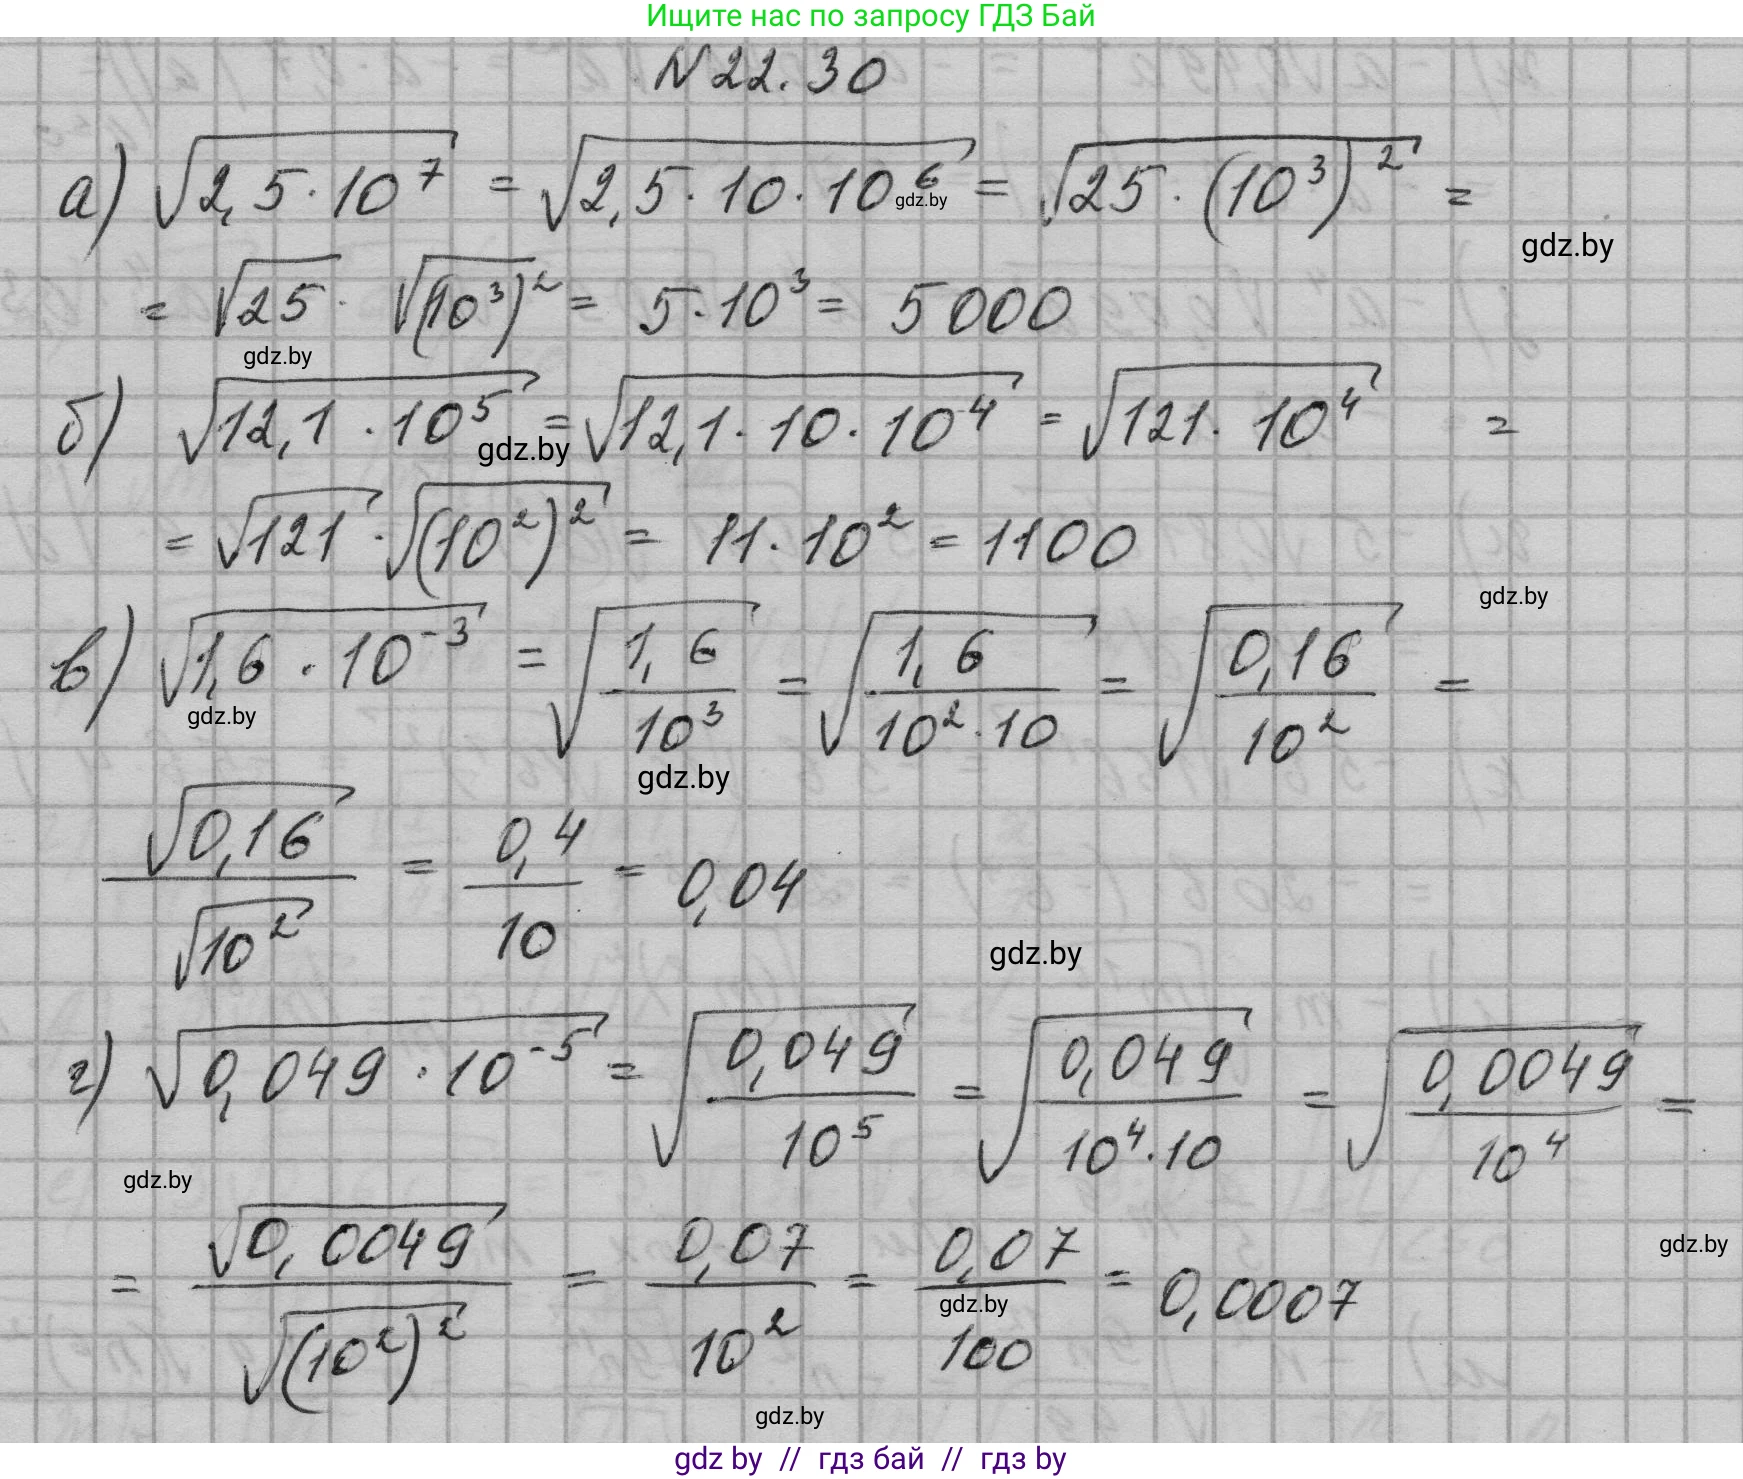 Ищите нас по запросу ГДЗ Бай
N 22.30
а) √(2,5 · 10^7) = √(2,5 · 10 · 10^6) = √(25 · (10^3)^2) =
gdz.by
gdz.by
= √25 · √((10^3)^2) = 5 · 10^3 = 5000
gdz.by
б) √(12,1 · 10^5) = √(12,1 · 10 · 10^4) = √(121 · 10^4) =
gdz.by
= √121 · √((10^2)^2) = 11 · 10^2 = 1100
gdz.by
в) √(1,6 · 10^-3) = √(1,6 / 10^3) = √(1,6 / (10^2 · 10)) = √(0,16 / 10^2) =
gdz.by
gdz.by
√0,16 / √(10^2) = 0,4 / 10 = 0,04
gdz.by
г) √(0,049 · 10^-5) = √(0,049 / 10^5) = √(0,049 / (10^4 · 10)) = √(0,0049 / 10^4) =
gdz.by
gdz.by
= √0,0049 / √((10^2)^2) = 0,07 / 10^2 = 0,07 / 100 = 0,0007
gdz.by
gdz.by
gdz by // гдз бай // гдз by